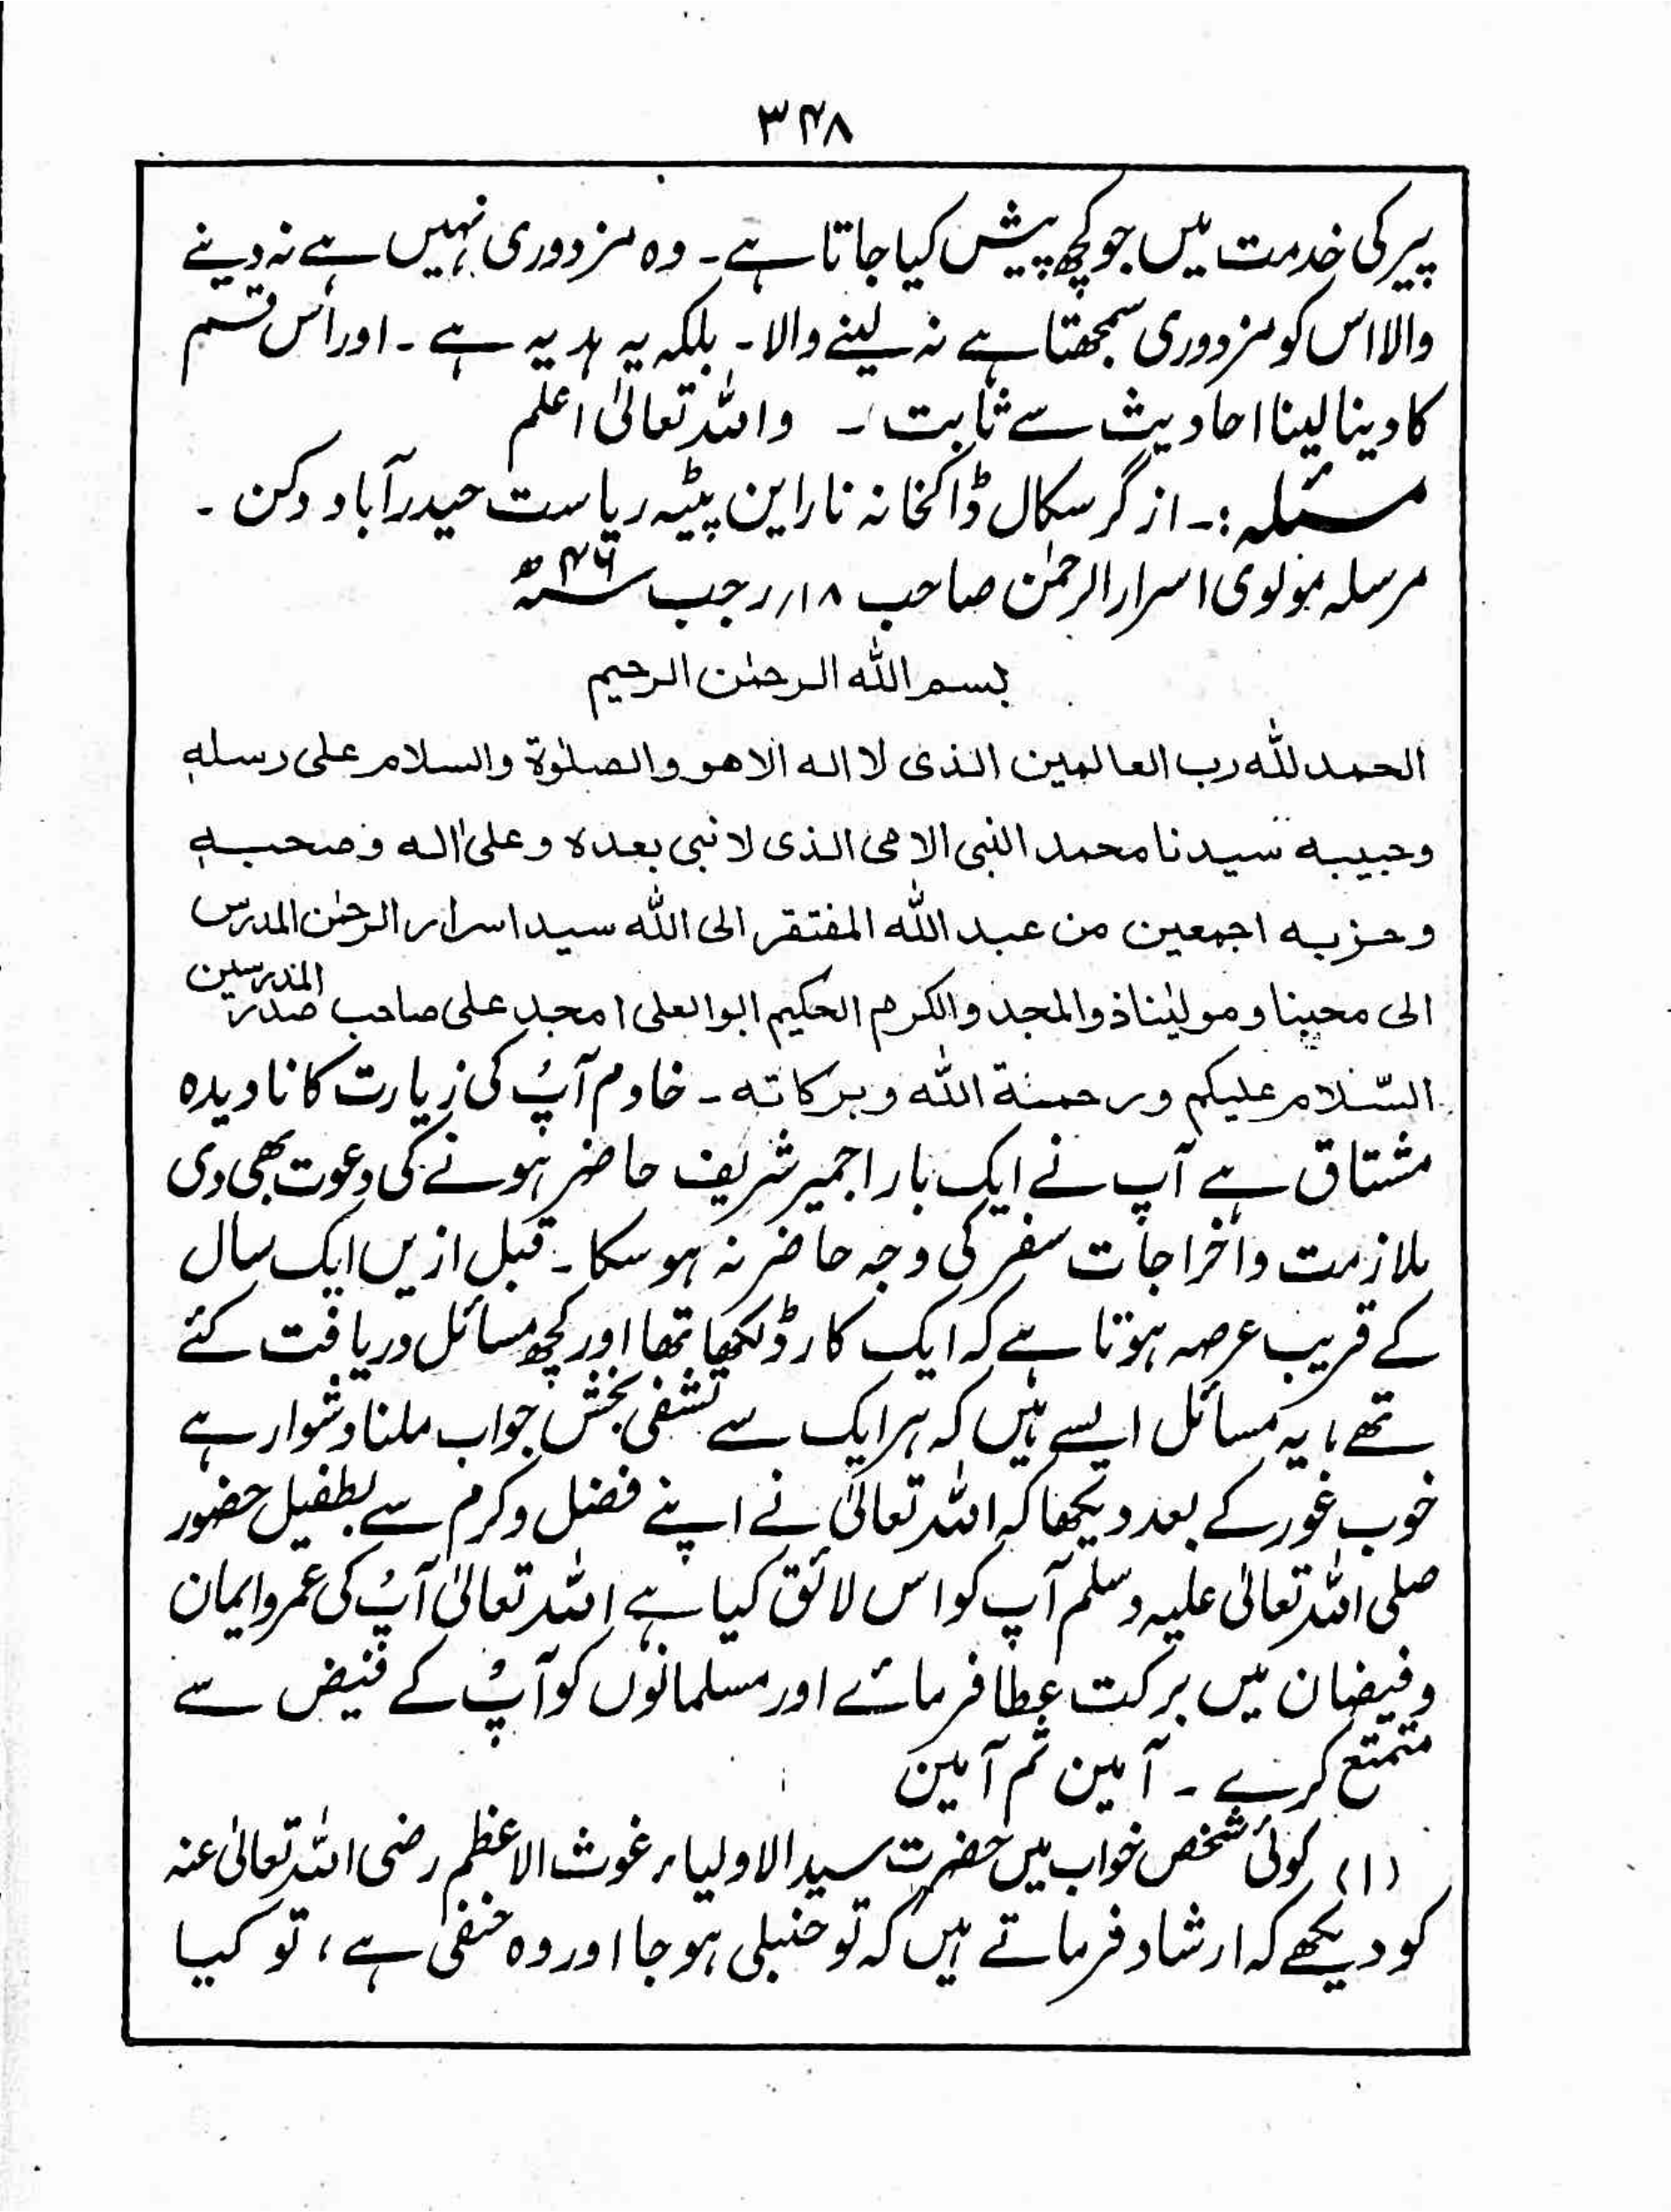 ۳۴۸
پیر کی خدمت میں جو کچھ پیش کیا جاتا ہے۔ وہ مزدوری نہیں ہے نہ دینے
والا اس کو مزدوری سمجھتا ہے نہ لینے والا۔ بلکہ یہ ہدیہ ہے۔ اور اس قسم
کا دینا لینا احادیث سے ثابت ۔ واللہ تعالیٰ اعلم
مسئلہ :۔ از گرسکال ڈاکخانہ ناراین پیٹھ ریاست حیدرآباد دکن ۔
مرسلہ مولوی اسرار الرحمٰن صاحب ۱۸؍ رجب ۴۶ھ
بسم اللہ الرحمٰن الرحیم
الحمد للہ رب العالمین الذی لا الہ الا ھو والصلوٰۃ والسلام علی رسلہٖ
وحبیبہ سیدنا محمد النبی الامی الذی لا نبی بعدہ وعلیٰ اٰلہ وصحبہٖ
وحزبہ اجمعین من عبد اللہ المفتقر الی اللہ سید اسرار الرحمٰن المدرس
الی محبنا ومولیٰنا ذو المجد والکرم الحکیم ابو العلی امجد علی صاحب صدر المدرسین
السّلام علیکم ورحمۃ اللہ وبرکاتہ ۔ خادم آپ کی زیارت کا نادیدہ
مشتاق ہے آپ نے ایک بار اجمیر شریف حاضر ہونے کی دعوت بھی دی
ملازمت و اخراجات سفر کی وجہ حاضر نہ ہو سکا ۔ قبل ازیں ایک سال
کے قریب عرصہ ہوتا ہے کہ ایک کارڈ لکھا تھا اور کچھ مسائل دریافت کئے
تھے، یہ مسائل ایسے ہیں کہ ہر ایک سے تشفی بخش جواب ملنا دشوار ہے
خوب غور کے بعد دیکھا کہ اللہ تعالیٰ نے اپنے فضل و کرم سے بطفیل حضور
صلی اللہ تعالیٰ علیہ وسلم آپ کو اس لائق کیا ہے اللہ تعالیٰ آپ کی عمر و ایمان
و فیضان میں برکت عطا فرمائے اور مسلمانوں کو آپ کے فیض سے
متمتع کرے ۔ آمین ثم آمین
(۱) کوئی شخص خواب میں حضرت سید الاولیاء غوث الاعظم رضی اللہ تعالیٰ عنہ
کو دیکھے کہ ارشاد فرماتے ہیں کہ تو حنبلی ہو جا اور وہ حنفی ہے، تو کیا